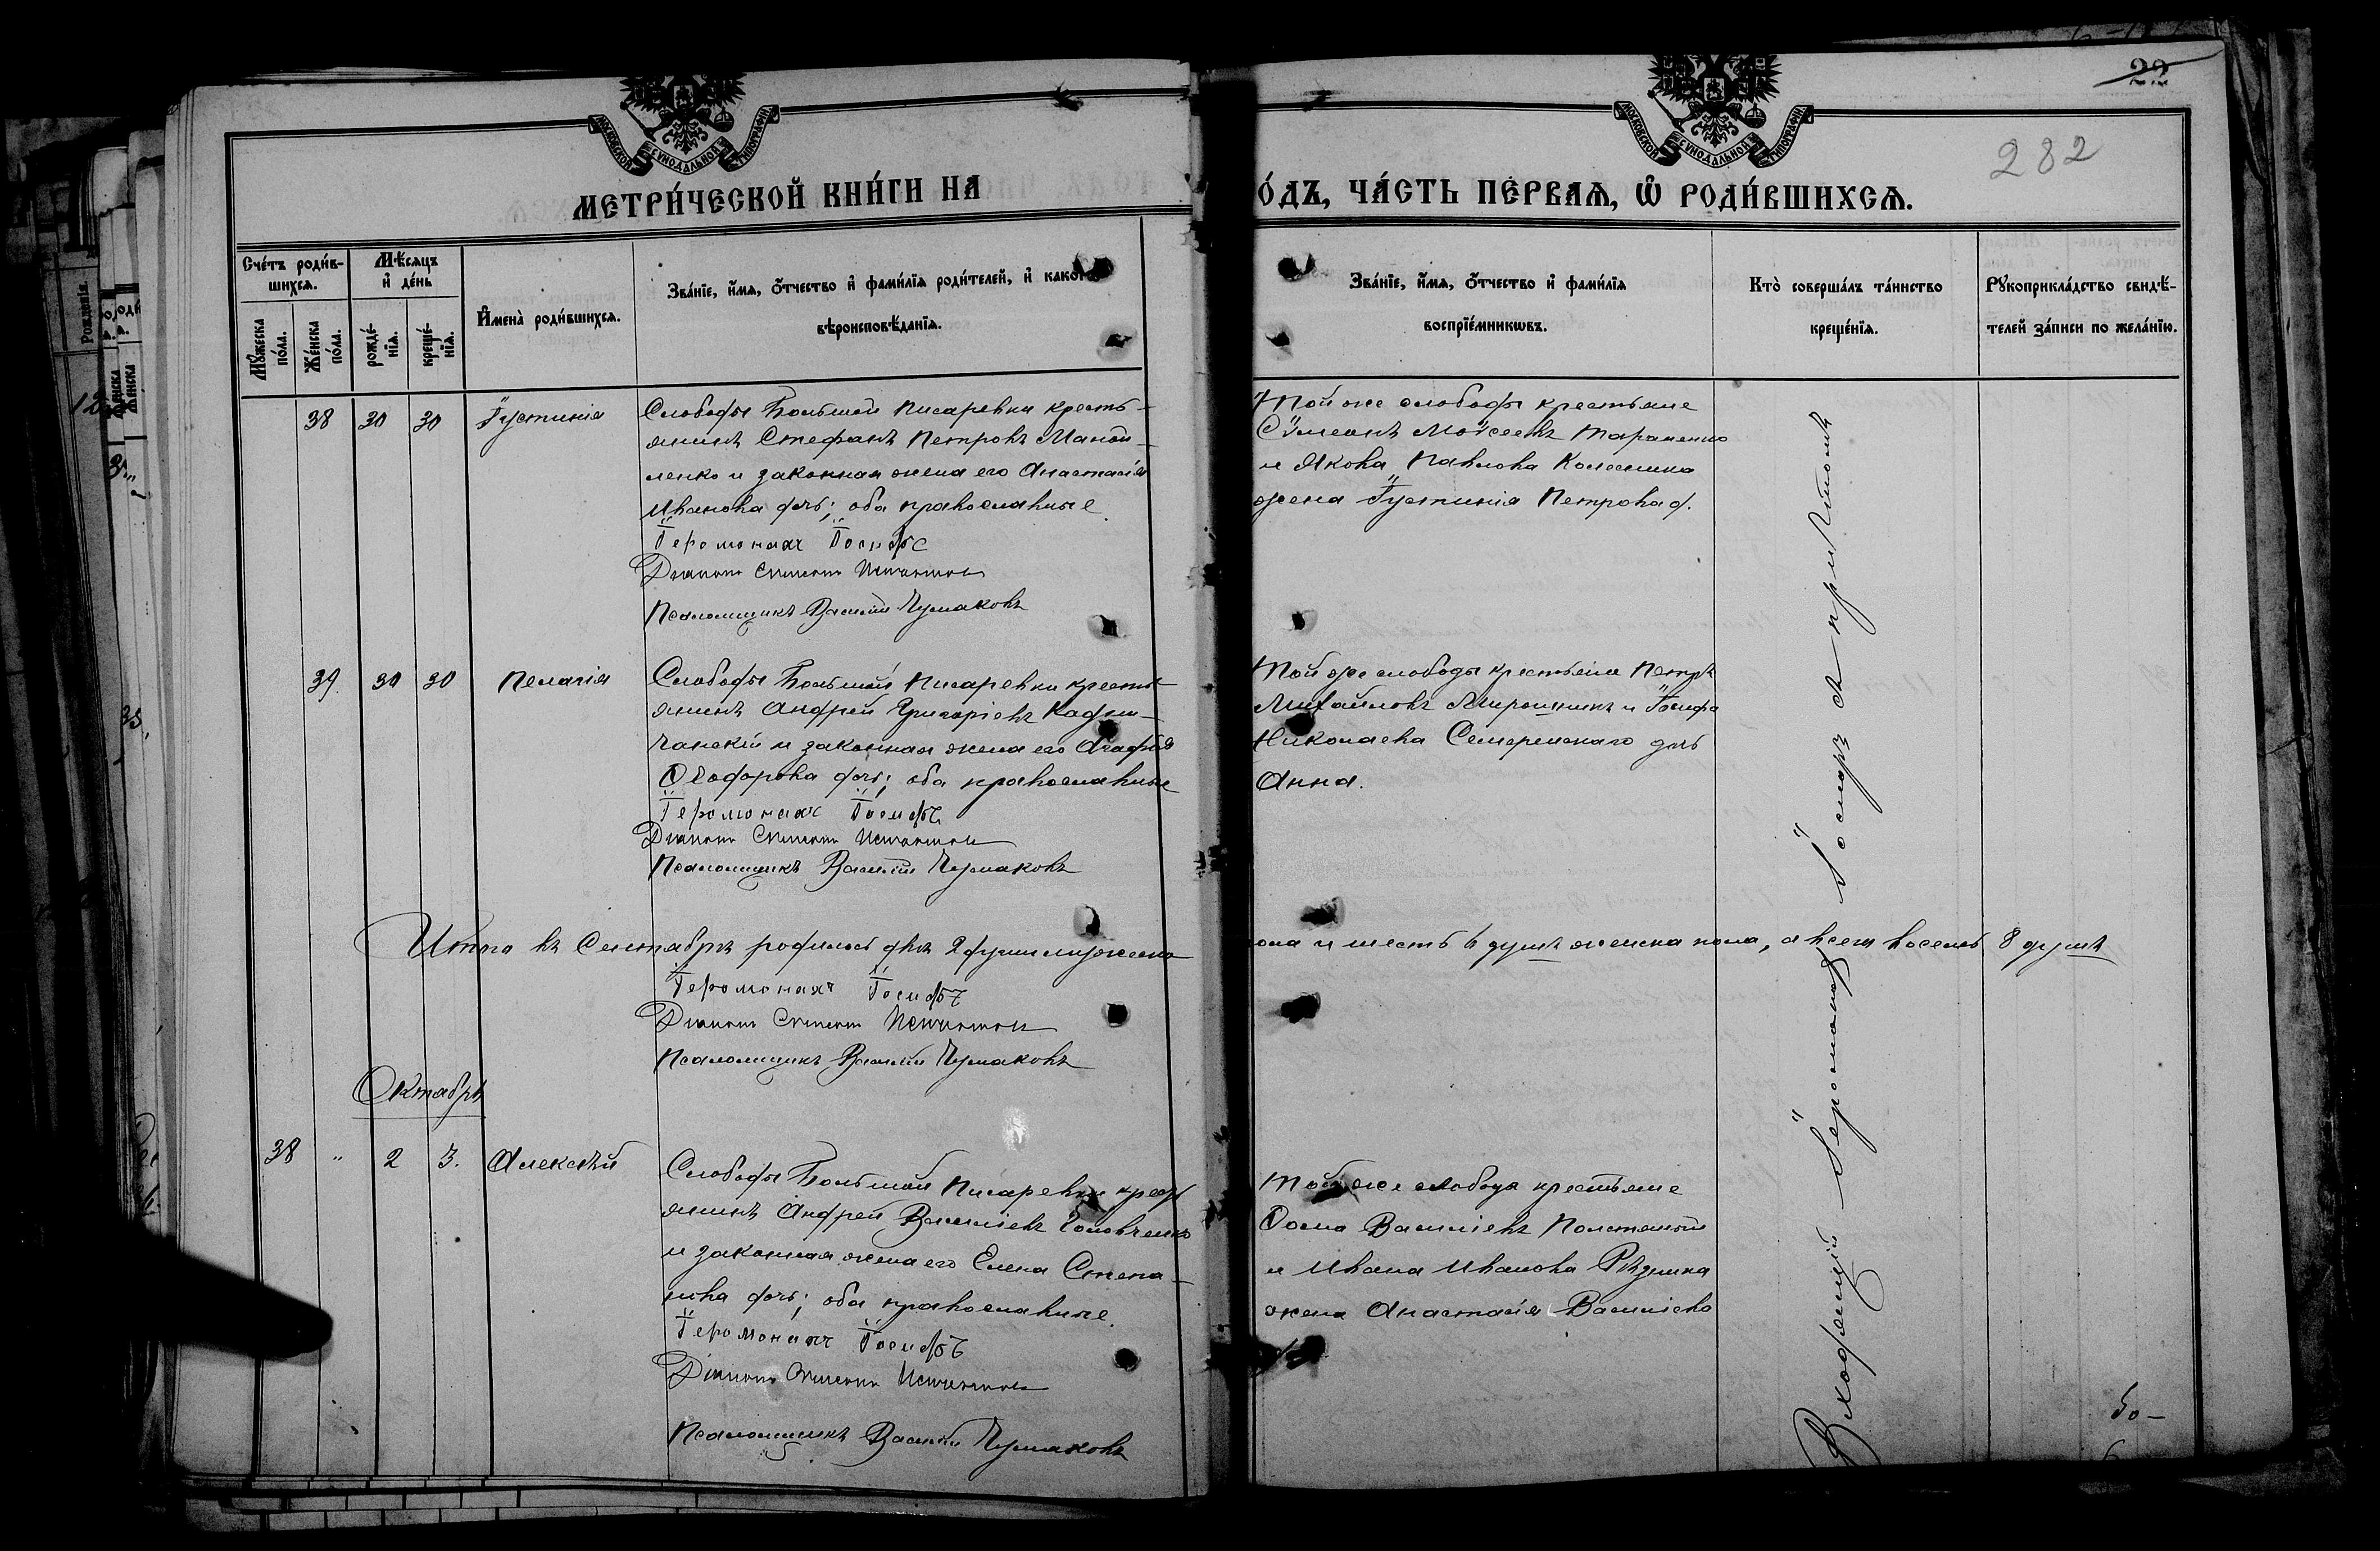 22
282
МОСКОВСКОЙ СѴНОДАЛЬНОЙ ТИПОГРАФІИ
МОСКОВСКОЙ СѴНОДАЛЬНОЙ ТИПОГРАФІИ
МЕТРИ́ЧЕСКОЙ КНИ́ГИ НА
О́ДЪ, ЧА́СТЬ ПЕ́РВАЯ, Ѡ҆ РОДИ́ВШИХСЯ.
Сче́тъ роди́в-
шихся.
Мѣ́сяцъ
и҆ де́нь
Мꙋ́жеска
по́ла.
Же́нска
по́ла.
рожде́-
нїя.
креще́-
нїя.
И҆мена̀ роди́вшихся.
Зва́нїе, и҆́мя, ѻ҆́тчество и҆ фами́лїя роди́телей, и҆ како́гѡ
вѣроисповѣ́данїя.
Зва́нїе, и҆́мя, ѻ҆́тчество и҆ фами́лїя
воспрїе́мникѡвъ.
Кто̀ соверша́лъ та́инство
креще́нїя.
Рꙋкоприкла́дство свидѣ́-
телей за́писи по жела́нїю.
38 30 30 Іустинія
Слободы Большой Писаревки кресть-
янинъ Стефанъ Петровъ Маной-
ленко и законная жена его Анастасія
Иванова дочь; оба православные.
Іеромонахъ Іосифъ
Діаконъ
Псаломщикъ Василій Чумаковъ
Той же слободы крестьяне
Сѵмеонъ Моѵсеевъ Тараненко
и Якова Павлова Колесника
жена Іустинія Петрова д.
39. 30 30 Пелагія
Слободы Большой Писаревки кресть-
янинъ Андрей Григоріевъ Кады-
и законная жена его Агафія
Ѳеодорова дочь; оба православные
Іеромонахъ Іосифъ
Діаконъ
Псаломщикъ Василій Чумаковъ
Той же слободы крестьяне Петръ
Михайловъ Мирошникъ и Іосифа
Николаева Семеренскаго дчь
Анна.
Итого въ Сентябрѣ родилось двѣ 2 души мужеска
пола и шесть 6 душъ женска пола, а всего восемь 8 душъ
Іеромонахъ Іосифъ
Діаконъ
Псаломщикъ Василій Чумаковъ
Октябрь
38 " 2 3. Алексѣй
Слободы Большой Писаревки крест-
янинъ Андрей Василіевъ Головченко
и законная жена его Елена Степа-
нова дочь; оба православные.
Іеромонахъ Іосифъ
Діаконъ
Псаломщикъ Василій Чумаковъ
Той же слободы крестьяне
Ѳома Василіевъ Полстяной
и Ивана Иванова Рѣзника
жена Анастасія Василіева
Іеромонахъ Іосифъ